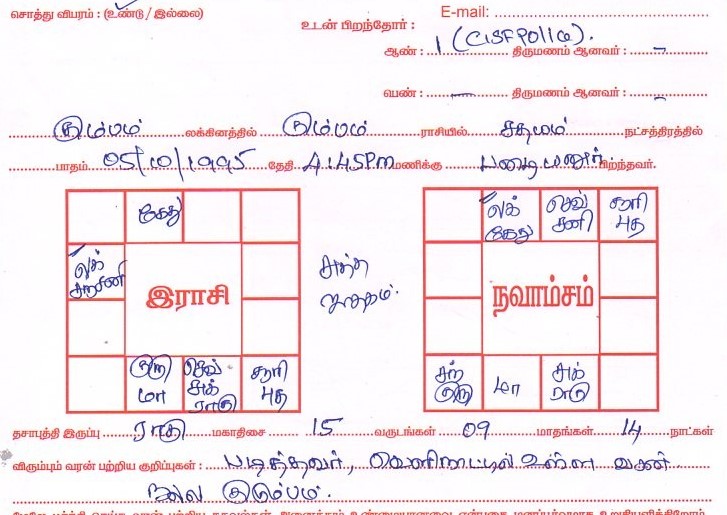 சொத்து விபரம் : (உண்டு / இல்லை)
E-mail:
உடன் பிறந்தோர் :
ஆண் : 1 (CISF Police). திருமணம் ஆனவர் : –
பெண் : — திருமணம் ஆனவர் : –
கும்பம் லக்கினத்தில் கும்பம் ராசியில் சதயம் நட்சத்திரத்தில்
பாதம் 05/10/1995 தேதி 4:45 Pm மணிக்கு பிறந்தவர்.
கேது
லக்
சனி
இராசி
குரு
மா
செவ்
சுக்
ராகு
சூரி
புத
லக்
கேது
செவ்
சனி
சூரி
புத
நவாம்சம்
சந்
குரு
மா
சுக்
ராகு
தசாபுத்தி இருப்பு ராகு மகாதிசை 15 வருடங்கள் 09 மாதங்கள் 14 நாட்கள்
விரும்பும் வரன் பற்றிய குறிப்புகள் : படித்தவர், வெளிநாட்டில் உள்ள
நல்ல குடும்பம்.